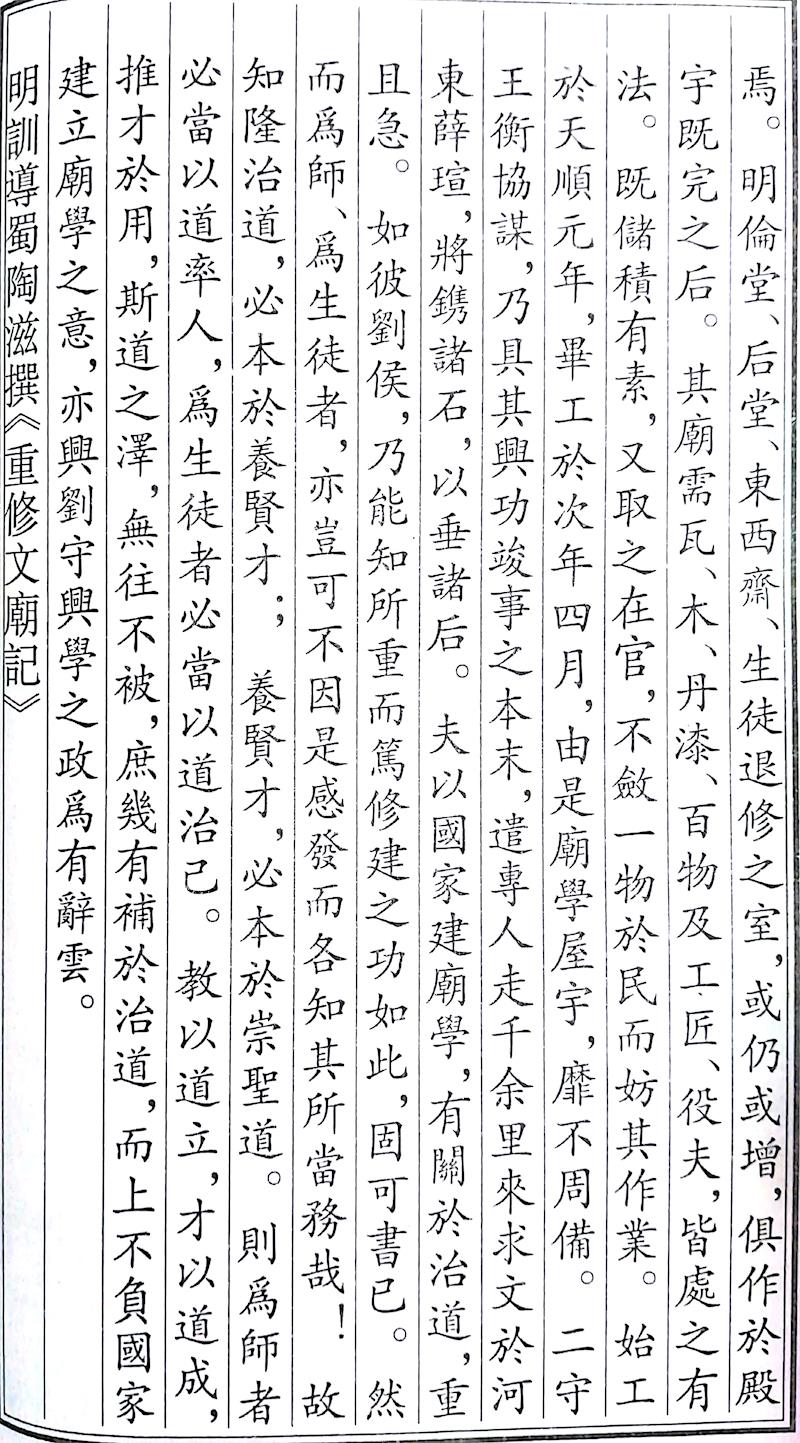 焉。明倫堂、后堂、東西齋、生徒退修之室，或仍或增，俱作於殿
宇既完之后。其廟需瓦、木、丹漆、百物及工匠、役夫，皆處之有
法。既儲積有素，又取之在官，不斂一物於民而妨其作業。始工
於天順元年，畢工於次年四月，由是廟學屋宇，靡不周備。二守
王衡協謀，乃具其興功竣事之本末，遣專人走千余里來求文於河
東薛瑄，將鐫諸石，以垂諸后。夫以國家建廟學，有關於治道，重
且急。如彼劉侯，乃能知所重而篤修建之功如此，固可書已。然
而爲師、爲生徒者，亦豈可不因是感發而各知其所當務哉！故
知隆治道，必本於養賢才；養賢才，必本於崇聖道。則爲師者
必當以道率人，爲生徒者必當以道治己。教以道立，才以道成，
推才於用，斯道之澤，無往不被，庶幾有補於治道，而上不負國家
建立廟學之意，亦興劉守興學之政爲有辭雲。
明訓導蜀陶滋撰《重修文廟記》